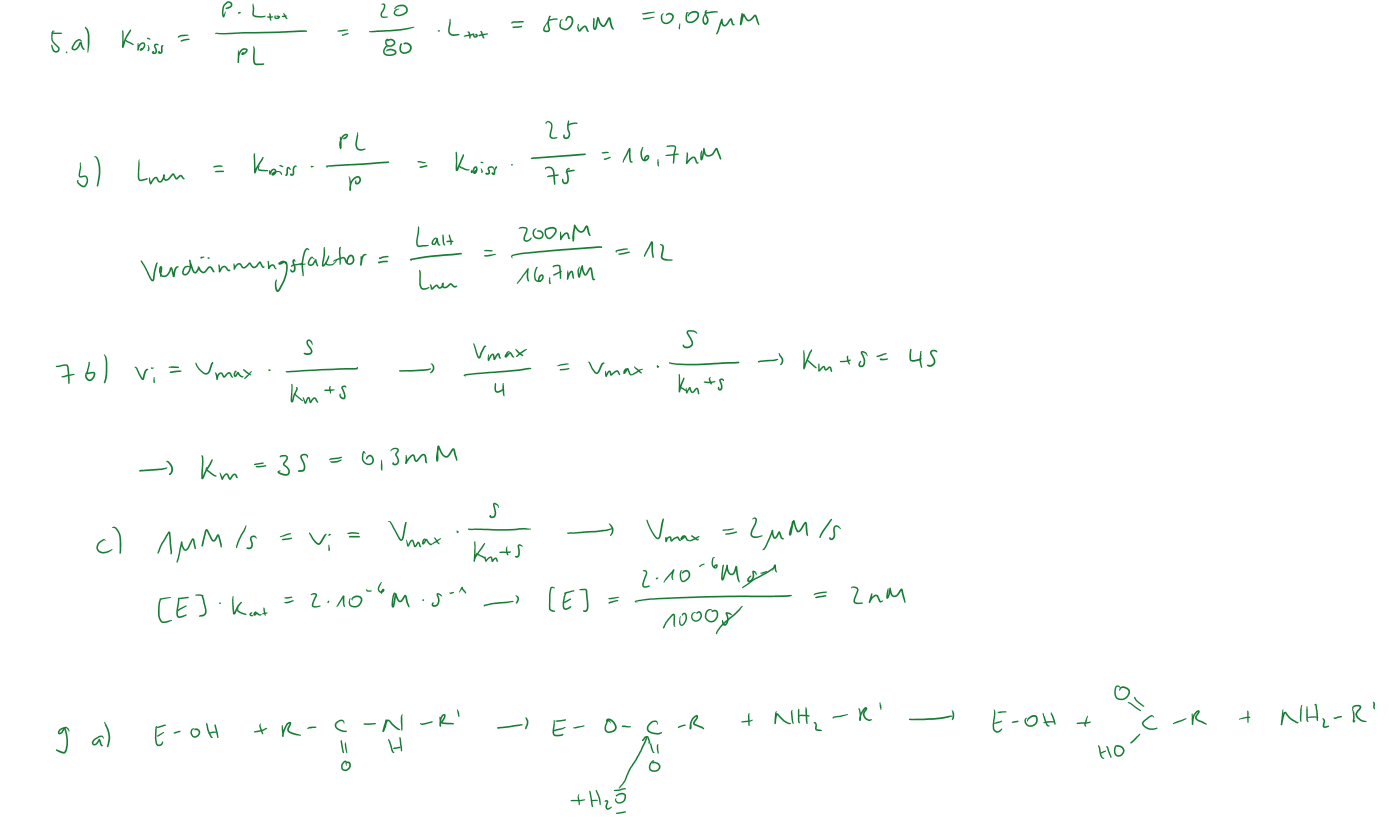 5.a) K_Diss = P · L_tot / PL = 20/80 · L_tot = 50nM = 0,05µM
b) L_neu = K_Diss · PL/P = K_Diss · 25/75 = 16,7nM
Verdünnungsfaktor = L_alt/L_neu = 200nM/16,7nM = 12
7b) v_i = v_max · S/(K_m+S) → v_max/4 = v_max · S/(K_m+S) → K_m+S = 4S
→ K_m = 3S = 0,3mM
c) 1µM/s = v_i = V_max · S/(K_m+S) → V_max = 2µM/s
[E] · K_cat = 2·10^-6 M · s^-1 → [E] = 2·10^-6 M s^-1 / 1000s = 2nM
9 a) E-OH + R-C(=O)-NH-R' → E-O-C(=O)-R + NH₂-R' → E-OH + HO-C(=O)-R + NH₂-R'
+H₂O